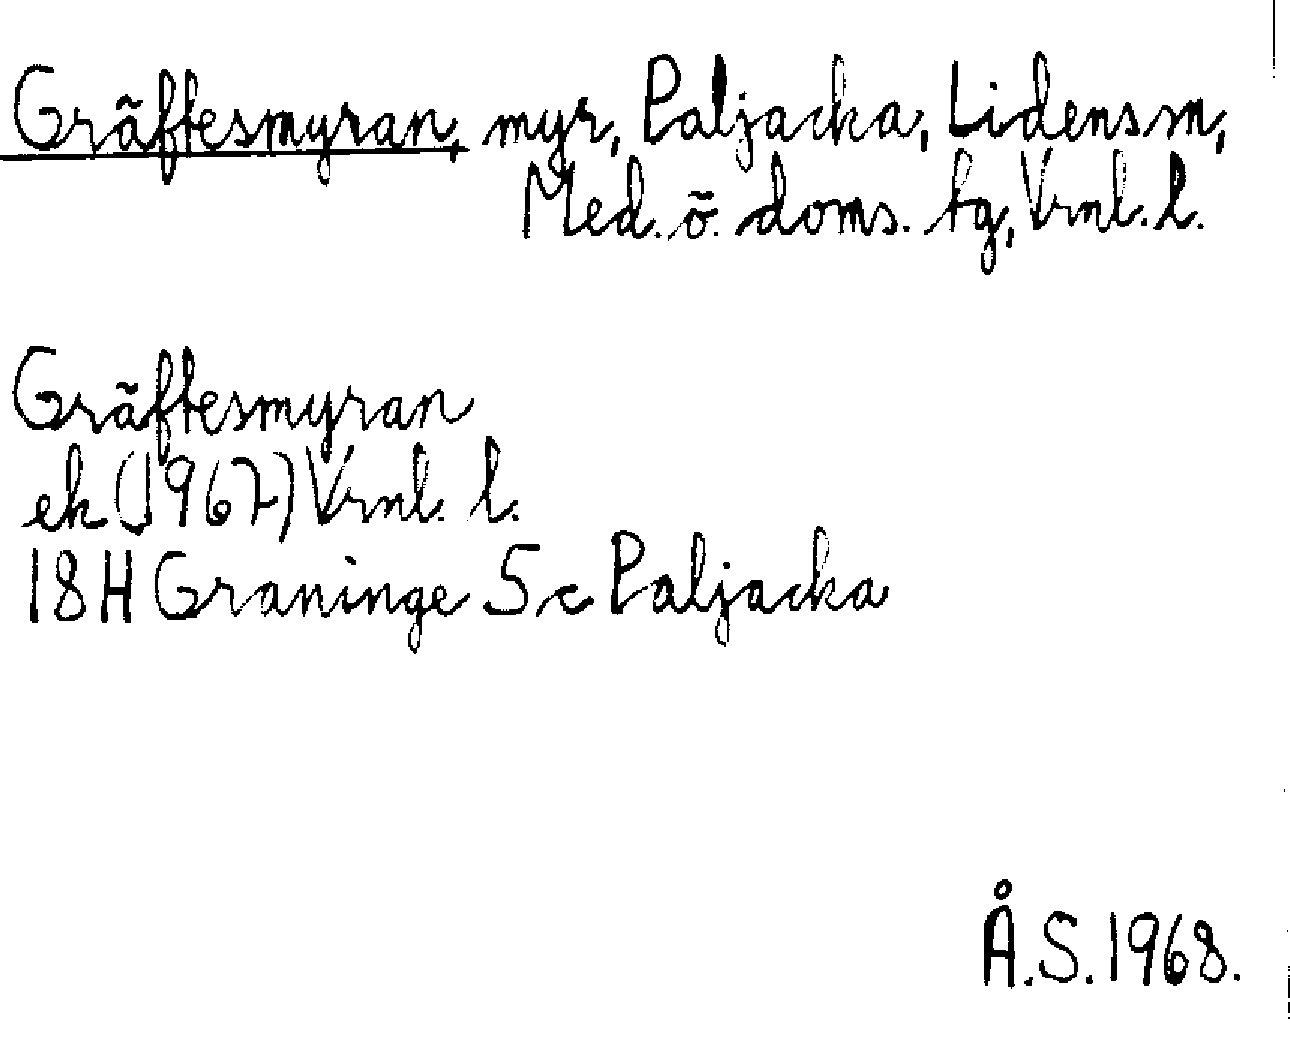 Gräftesmyran, myr, Paljacka, Lidens sn,
Med. ö. doms. tg, Vrnl. l.
Gräftesmyran
ek (1967) Vrnl. l.
18H Graninge 5c Paljacka
Å.S. 1968.